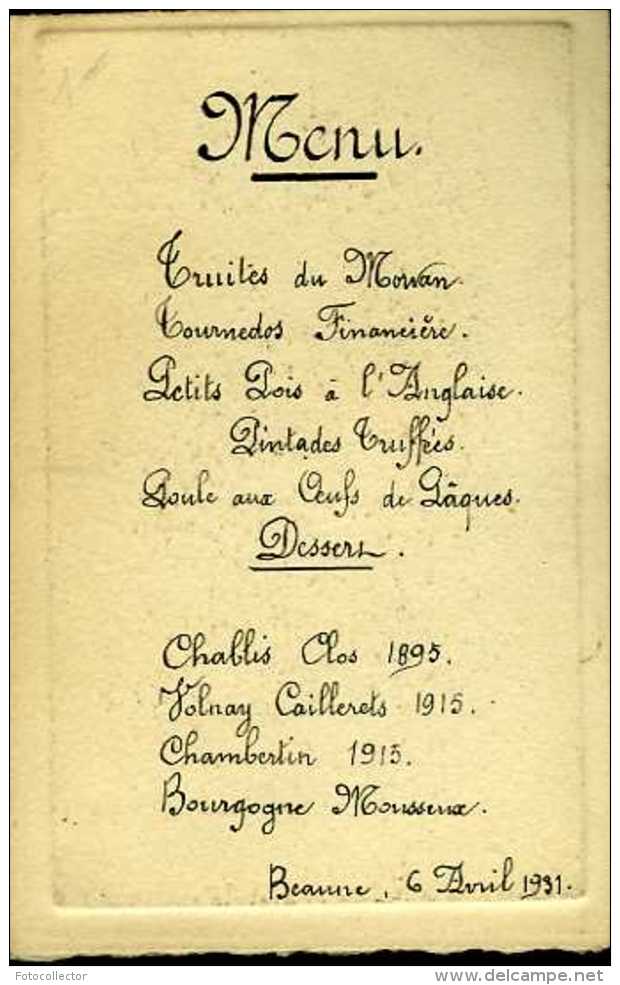 Menu.
Truites du Morvan.
Tournedos Financière.
Petits Pois à l'Anglaise.
Pintades Truffées.
Poule aux Oeufs de Pâques.
Dessert.
Chablis Clos 1895.
Volnay Caillerets 1915.
Chambertin 1915.
Bourgogne Mousseux.
Beaune, 6 Avril 1931.
Fotocollector
www.delcampe.net